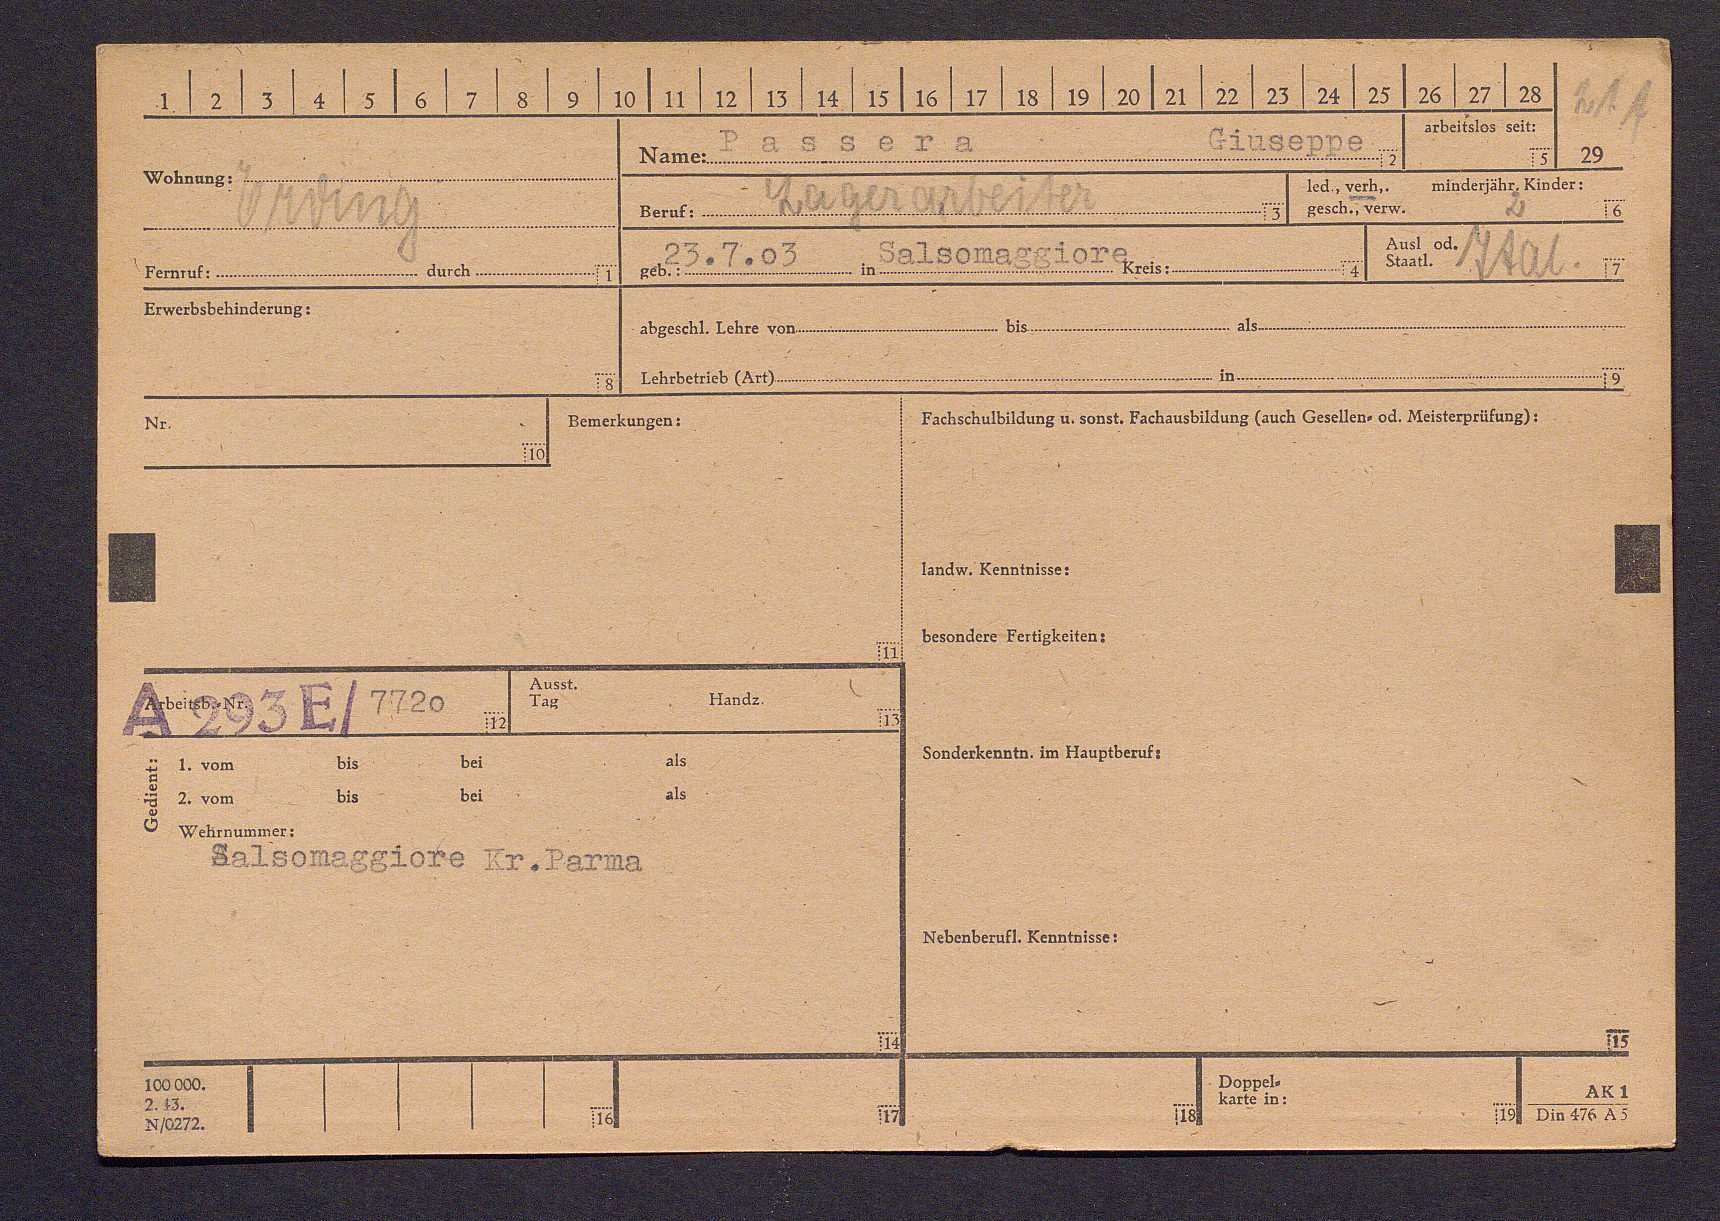 1 2 3 4 5 6 7 8 9 10 11 12 13 14 15 16 17 18 19 20 21 22 23 24 25 26 27 28
29
Wohnung: Erding
Fernruf: durch 1
Name: Passera Giuseppe 2
arbeitslos seit: 5
Beruf: Lagerarbeiter 3
led., verh,. minderjähr. Kinder:
gesch., verw. 2 6
geb.: 23.7.03 in Salsomaggiore Kreis: 4
Ausl od.
Staatl. Ital. 7
Erwerbsbehinderung:
8
abgeschl. Lehre von bis als
Lehrbetrieb (Art) in 9
Nr.
10
Bemerkungen:
11
Fachschulbildung u. sonst. Fachausbildung (auch Gesellen- od. Meisterprüfung):
landw. Kenntnisse:
besondere Fertigkeiten:
Sonderkenntn. im Hauptberuf:
Nebenberufl. Kenntnisse:
15
Arbeitsb.-Nr. A 293 E/ 7720 12
Ausst.
Tag Handz. 13
Gedient:
1. vom bis bei als
2. vom bis bei als
Wehrnummer:
Salsomaggiore Kr.Parma
14
100 000.
2. 43.
N/0272.
16
17
18
Doppel-
karte in:
19
AK 1
Din 476 A 5